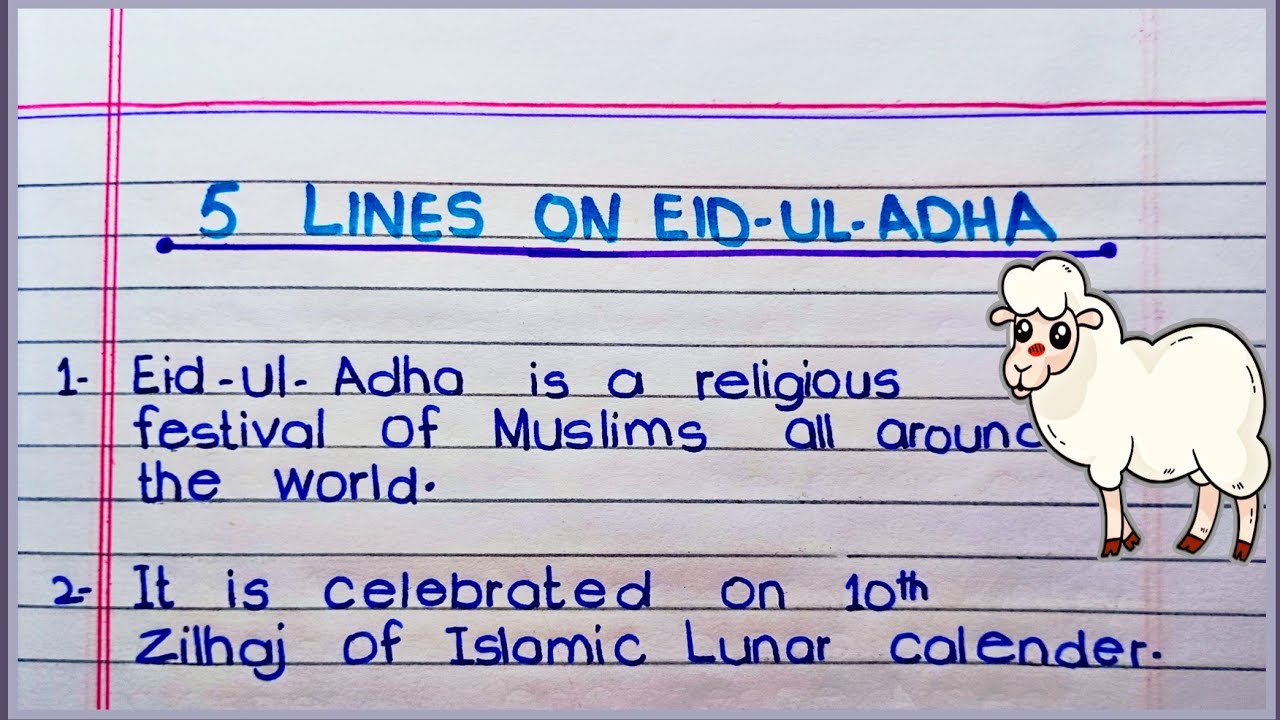 5 LINES ON EID-UL-ADHA
1- Eid-ul-Adha is a religious
festival of Muslims all around
the world.
2- It is celebrated on 10th
Zilhaj of Islamic Lunar calender.